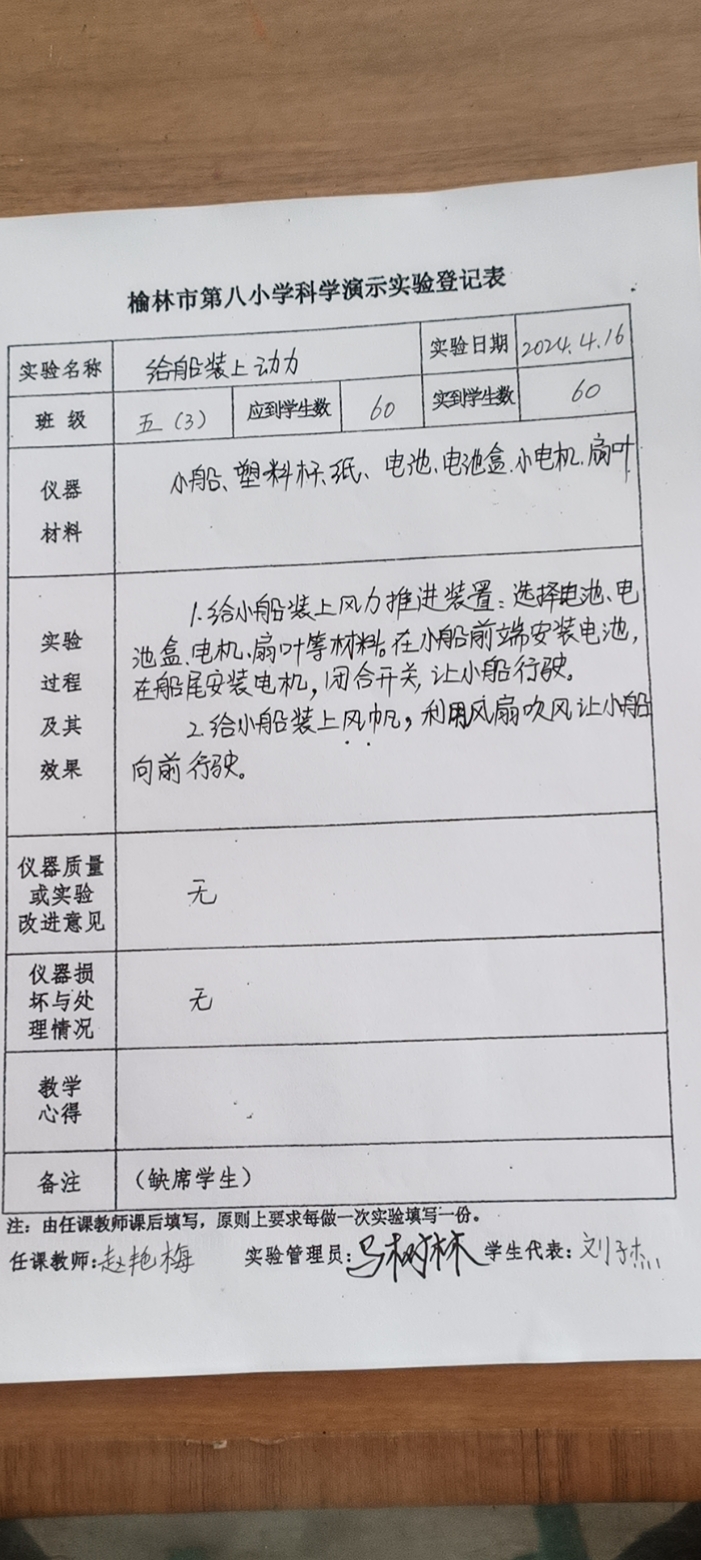 榆林市第八小学科学演示实验登记表
实验名称 给船装上动力 实验日期 2024.4.16
班 级 五(3) 应到学生数 60 实到学生数 60
仪器
材料
小船、塑料杯、纸、电池、电池盒、小电机、扇叶
实验
过程
及其
效果
1.给小船装上风力推进装置:选择电池、电
池盒、电机、扇叶等材料。在小船前端安装电池,
在船尾安装电机,闭合开关,让小船行驶。
2.给小船装上风帆,利用风扇吹风让小船
向前行驶。
仪器质量
或实验
改进意见
无
仪器损
坏与处
理情况
无
教学
心得
备注 (缺席学生)
注:由任课教师课后填写,原则上要求每做一次实验填写一份。
任课教师:赵艳梅 实验管理员:马树林 学生代表:刘子杰